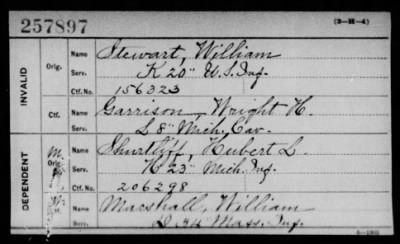 257897 (3-H-4)
INVALID
Orig. Name Stewart, William
Serv. K 20" U.S. Inf.
Ctf. No. 156323
Ctf. Name Garrison, Wright H.
Serv. L 8" Mich. Cav.
DEPENDENT
Orig. Name Shurtliff, Hubert L.
Serv. K 23" Mich. Inf.
Ctf. No. 206298
Name Marshall, William
D 34 Mass. Inf.